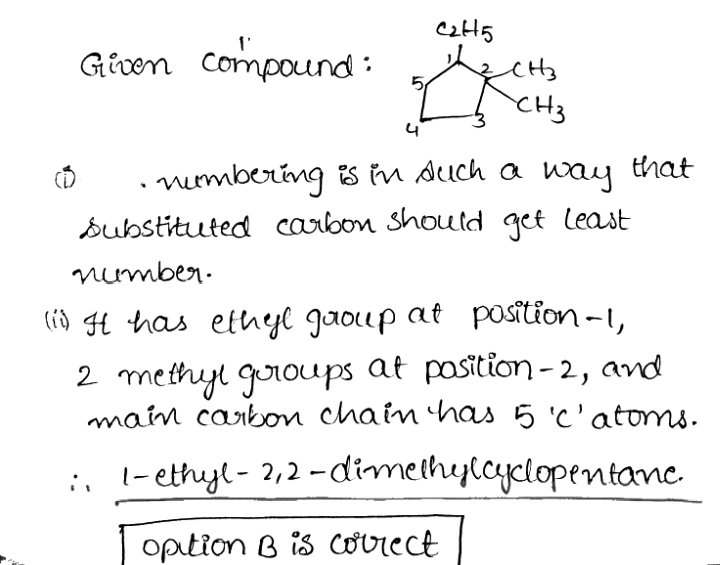 C2H5
Given compound :
1 2 CH3
5 CH3
4 3
(i) . numbering is in such a way that
substituted carbon should get least
number.
(ii) It has ethyl group at position-1,
2 methyl groups at position-2, and
main carbon chain has 5 'c' atoms.
∴ 1-ethyl-2,2-dimethylcyclopentane.
option B is correct